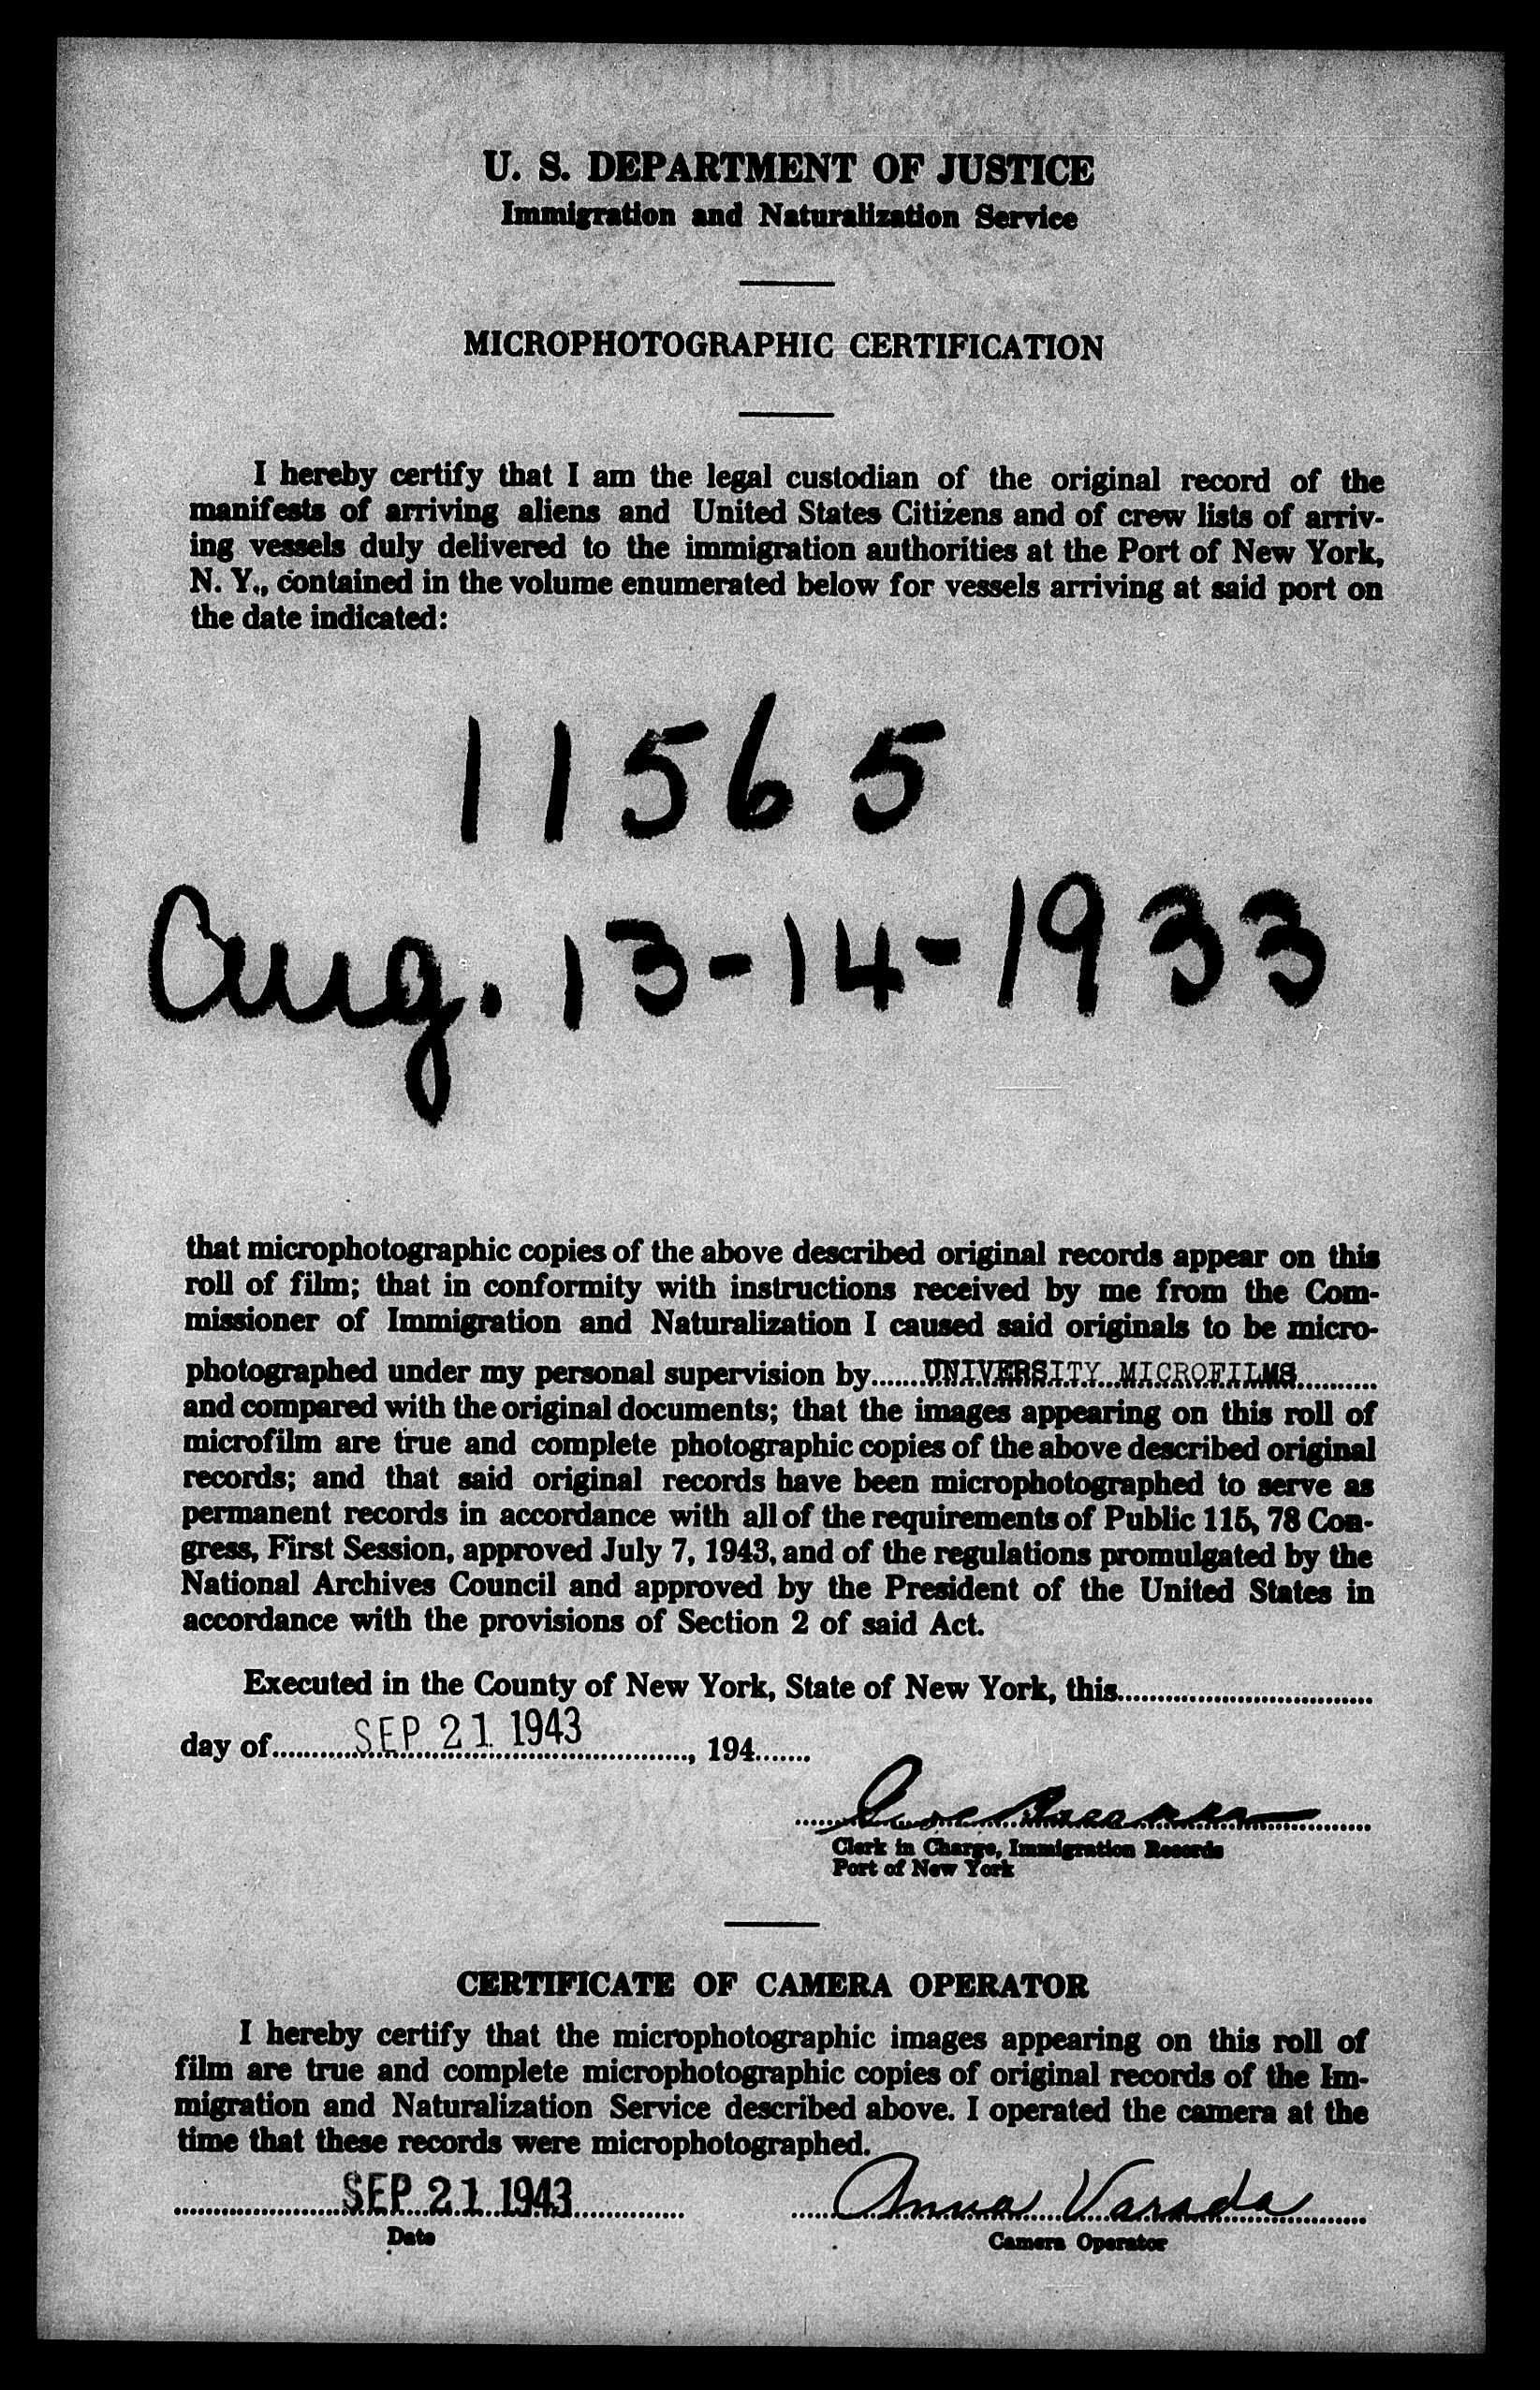 U. S. DEPARTMENT OF JUSTICE
Immigration and Naturalization Service
MICROPHOTOGRAPHIC CERTIFICATION
I hereby certify that I am the legal custodian of the original record of the
manifests of arriving aliens and United States Citizens and of crew lists of arriv-
ing vessels duly delivered to the immigration authorities at the Port of New York,
N. Y., contained in the volume enumerated below for vessels arriving at said port on
the date indicated:
11565
Aug. 13-14-1933
that microphotographic copies of the above described original records appear on this
roll of film; that in conformity with instructions received by me from the Com-
missioner of Immigration and Naturalization I caused said originals to be micro-
photographed under my personal supervision by.......UNIVERSITY MICROFILMS...........
and compared with the original documents; that the images appearing on this roll of
microfilm are true and complete photographic copies of the above described original
records; and that said original records have been microphotographed to serve as
permanent records in accordance with all of the requirements of Public 115, 78 Con-
gress, First Session, approved July 7, 1943, and of the regulations promulgated by the
National Archives Council and approved by the President of the United States in
accordance with the provisions of Section 2 of said Act.
Executed in the County of New York, State of New York, this.................................
day of...........SEP 21 1943..............., 194.......
Clerk in Charge, Immigration Records
Port of New York
CERTIFICATE OF CAMERA OPERATOR
I hereby certify that the microphotographic images appearing on this roll of
film are true and complete microphotographic copies of original records of the Im-
migration and Naturalization Service described above. I operated the camera at the
time that these records were microphotographed.
SEP 21 1943 Anna Varada
Date Camera Operator